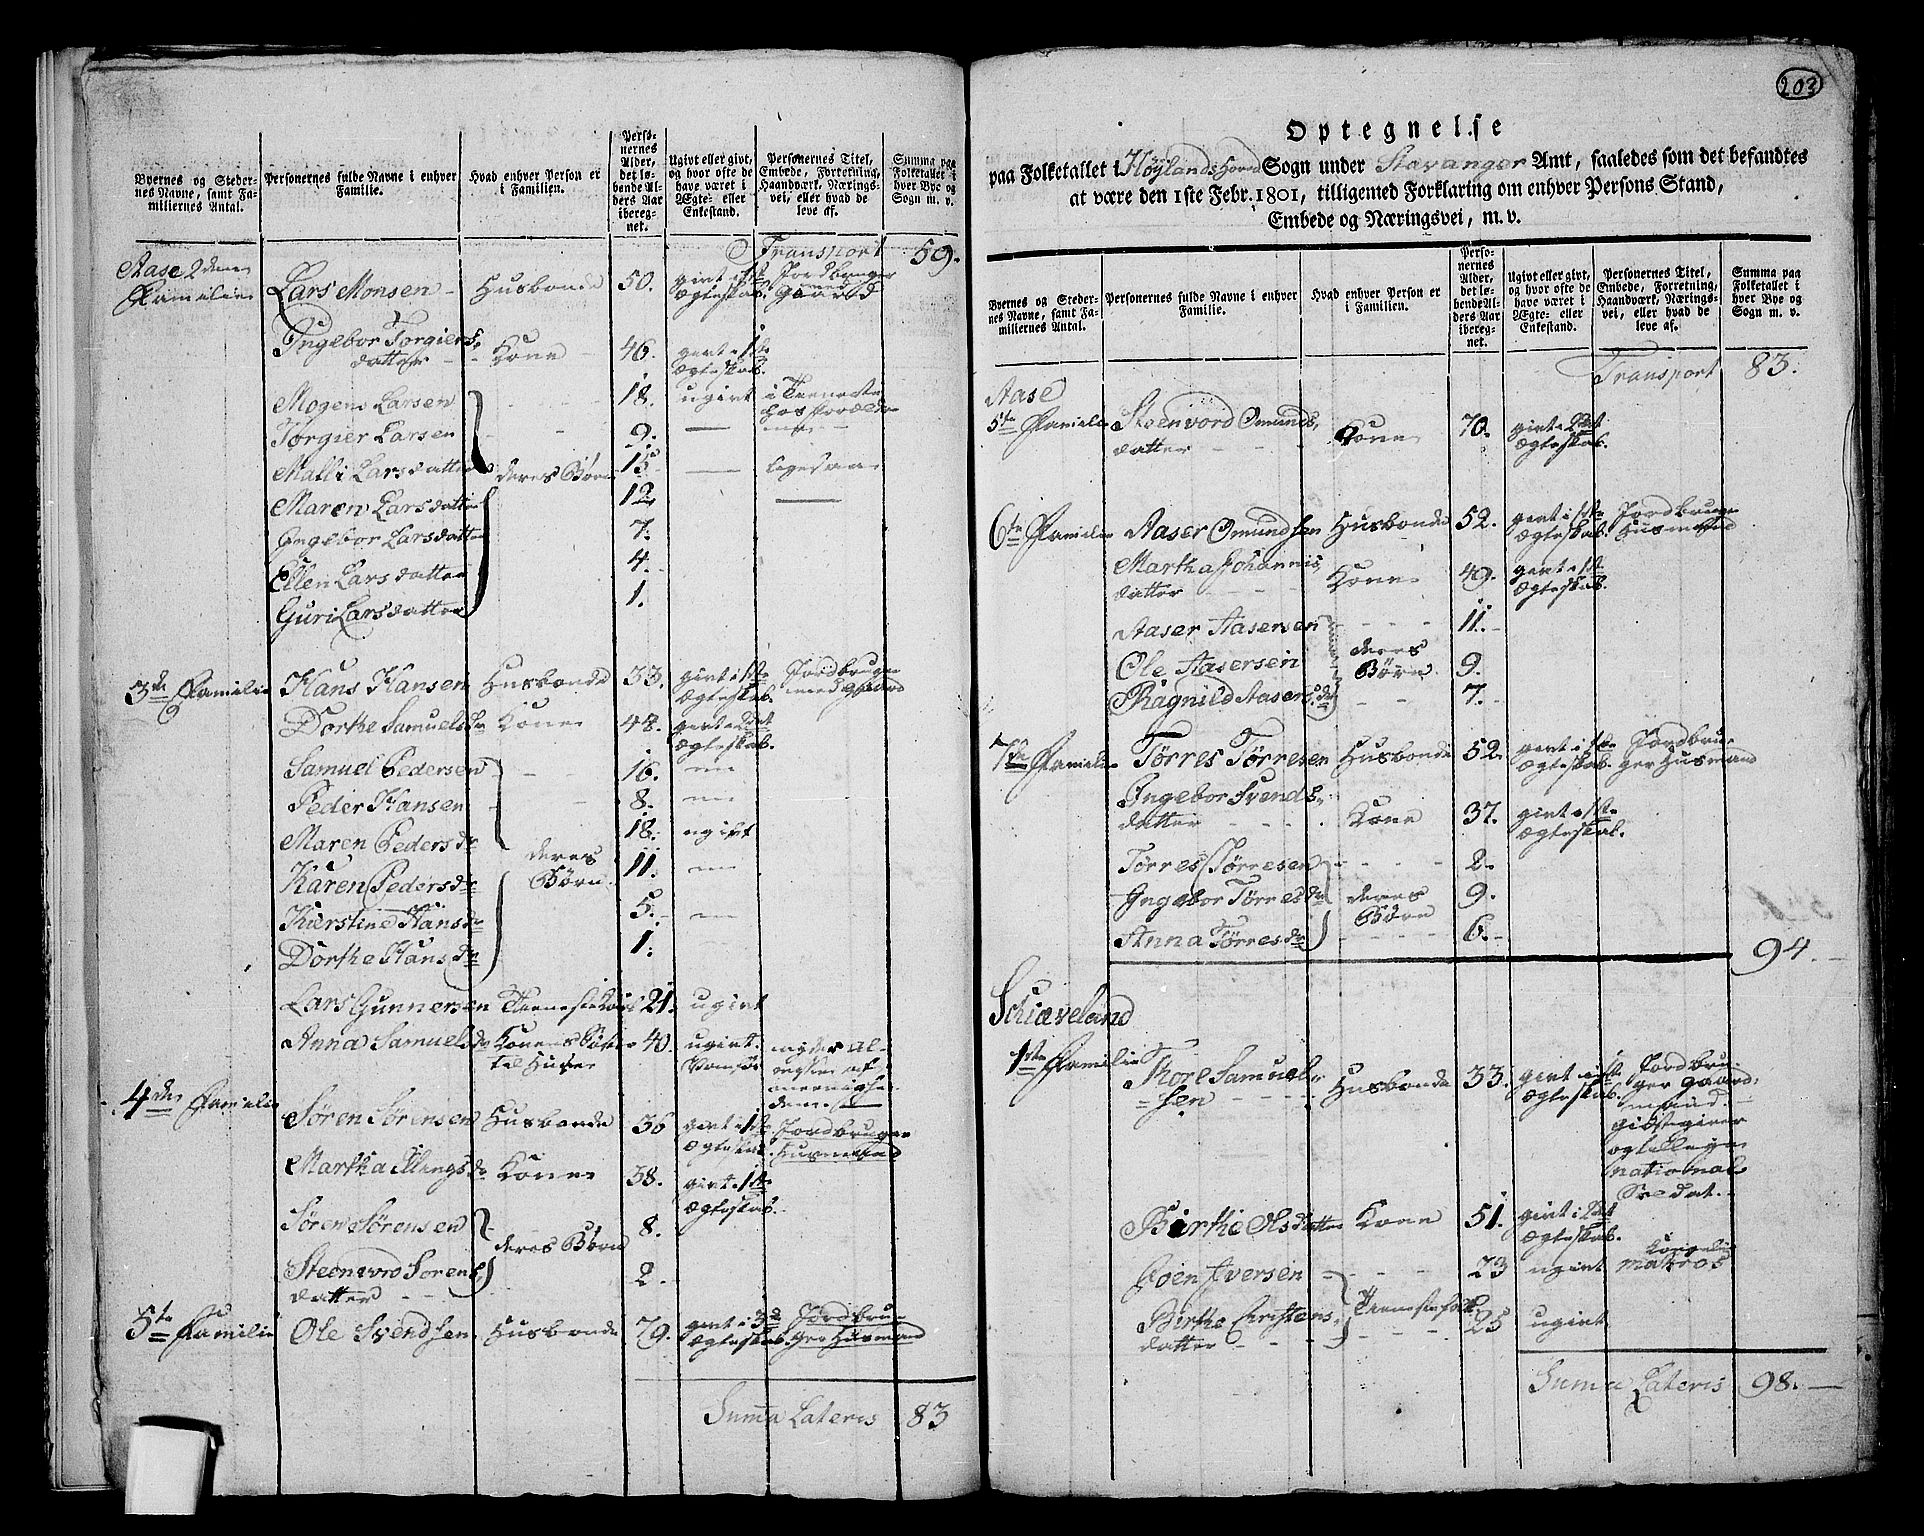 Byernes og Steder-
nes Navne, samt Fa-
miliernes Antal.
Personernes fulde Navne i enhver
Familie.
Hvad enhver Person er
i Familien.
Perso-
nernes
Alder,
det lø-
bende Al-
ders Aar
ibereg-
net.
Ugivt eller givt,
og hvor ofte de
have været i
Ægte- eller
Enkestand.
Personernes Titel,
Embede, Forretning,
Haandværk, Nærings-
vei, eller hvad de
leve af.
Summa paa
Folketallet i
hver Bye og
Sogn m. v.
Transport 59.
Aase 2den
Familie
Lars Monsen Husbonde 50. givt i 1ste Jordbruger
Ægteskab. med Gaard
Ingebor Torgiers
datter Kone 46. givt i 1ste
Ægteskab.
Mogens Larsen 18. ugivt i Tieneste
Torgier Larsen 9. hos Foræld-
Malli Larsdatter deres Børn 15 ligesaa
Maren Larsdatter 12
Ingebor Larsdatter 7.
Ellen Larsdatter 4.
Guri Larsdatter 1.
3de Familie Hans Hansen Husbonde 33. givt i 1ste Jordbruger
Ægteskab. med Gaard
Dorthe Samuelsdr Kone 44. givt i 2det
Ægteskab.
Samuel Pedersen 16.
Peder Hansen 8.
Maren Pedersdr 18. ugift
Karen Pedersdr deres Børn 11.
Kirstine Hansdr 5.
Dorthe Hansdr 1.
Lars Gunnersen 21. ugivt
Anna Samuelsdr Konens Søster 40. ugivt. nyder al-
til Huse Vanför
4de Familie
Søren Sørensen Husbonde 36 givt i 1ste Jordbruger
Ægteskab. Husmand
Martha Ellingsdr Kone 38. givt i 1ste
Ægteskab.
Søren Sørensen 8.
deres Børn
Steenvoro Sorens
datter 2.
5te Familie Ole Svendsen Husbonde 79. givt i 3de Jordbru-
Ægteskab. ger Husmand
Summa Lateris 83
203
Optegnelse
paa Folketallet i Høylands Sogn under Stavanger Amt, saaledes som det befandtes
at være den 1ste Febr. 1801, tilligemed Forklaring om enhver Persons Stand,
Embede og Næringsvei, m. v.
Byernes og Steder-
nes Navne, samt Fa-
miliernes Antal.
Personernes fulde Navne i enhver
Familie.
Hvad enhver Person er
i Familien.
Perso-
nernes
Alder,
det lø-
bende Al-
ders Aar
ibereg-
net.
Ugivt eller givt,
og hvor ofte de
have været i
Ægte- eller
Enkestand.
Personernes Titel,
Embede, Forretning,
Haandværk, Nærings-
vei, eller hvad de
leve af.
Summa paa
Folketallet i
hver Bye og
Sogn m. v.
Transport 83.
Aase
5te Familie Steenvord Omunds
datter Kone 70. givt i 2det
Ægteskab.
6te Familie Aaser Omundsen Husbonde 52. givt i 1ste Jordbruger
Ægteskab. Husmand
Martha Johannis
datter Kone 49. givt i 1ste
Ægteskab.
Aaser Aasersen 11.
Ole Aasersen deres Børn 9.
Ragnild Aasersdr 7.
7de Familie Tørres Tørresen Husbonde 52. givt i 1ste Jordbru-
Ægteskab. ger Husmand
Ingebor Svends
datter Kone 37. givt i 1ste
Ægteskab.
Tørres Tørresen 2.
Ingebor Tørresdr deres Børn 9.
Anna Tørresdr 6.
94.
Schiæveland
1ste Familie
Tore Samuel-
sen Husbonde 33. givt i 1ste Jordbru-
Ægteskab. ger Gaard-
mand.
Giestgiver
national
Soldat.
Birthe Olsdatter Kone 51. givt i 2det
Ægteskab.
Goen Iversen 23 ugivt Kongelig
Matros
Birthe Christens
datter Tienestefolk 25 ugivt
Summa Lateris 98.